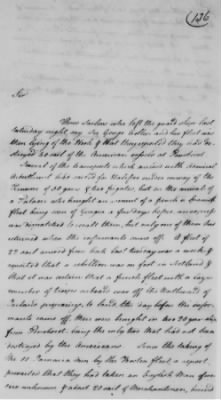 (136)
Sir
Three Sailors who left the guard Ship last
Saturday night, say Sir George Collier and his fleet are
then lying at the Hook & that they reported they had de-
stroyed 20 sail of the American vessels at Penobscot
Several of the transports which arrived with Admiral
Arbuthnot has sailed for Halifax under convoy of the
of 32 guns & two frigates, but on the arrival of
a Packet who brought an account of a french & Spanish
fleet being seen of a few days before, an express
was dispatched to recall them, but only one of them has
returned when the informants came off. A fleet of
22 sail arrived from Cork last
reported that a rebellion was on foot in Scotland &
that it was certain that a french fleet with a large
number of troops onboard were off the Northward of
Ireland preparing to land. the day before the infor-
mants came off there were brought in his 20 gun ship
from Penobscot being the only two that had not been
destroyed by the Americans. Since the taking of
the 10 Jamaica men by the Boston fleet a report
prevailed that they had taken an English Man of war
& about 20 sail of Merchantmen, bound